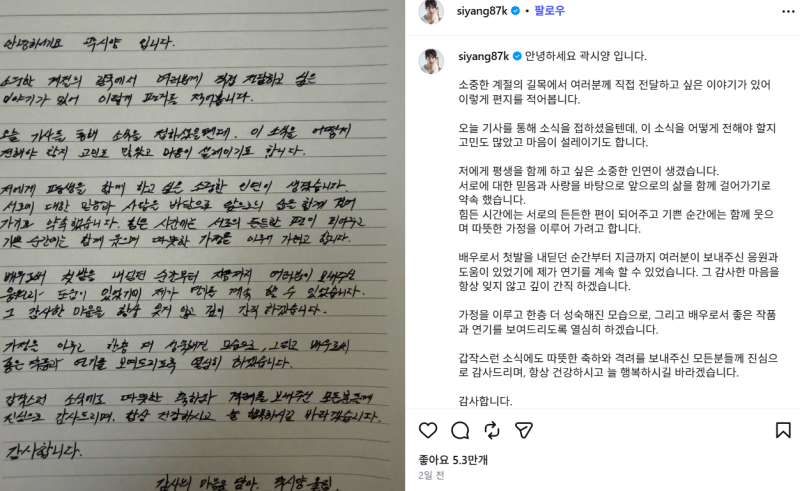 안녕하세요 곽시양 입니다.
소중한 계절의 길목에서 여러분께 직접 전달하고 싶은
이야기가 있어 이렇게 편지를 적어봅니다.
오늘 기사를 통해 소식을 접하셨을텐데, 이 소식을 어떻게
전해야 할지 고민도 많았고 마음이 설레이기도 합니다.
저에게 평생을 함께 하고 싶은 소중한 인연이 생겼습니다.
서로에 대한 믿음과 사랑을 바탕으로 앞으로의 삶을 함께 걸어
가기로 약속했습니다. 힘든 시간에는 서로의 든든한 편이 되어주고
기쁜 순간에는 함께 웃으며 따뜻한 가정을 이루어 가려고 합니다.
배우로써 첫발을 내딛던 순간부터 지금까지 여러분이 보내주신
응원과 도움이 있었기에 제가 연기를 계속 할 수 있었습니다.
그 감사한 마음을 항상 잊지 않고 깊이 간직 하겠습니다.
가정을 이루고 한층 더 성숙해진 모습으로, 그리고 배우로써
좋은 작품과 연기를 보여드리도록 열심히 하겠습니다.
갑작스런 소식에도 따뜻한 축하와 격려를 보내주신 모든분들께
진심으로 감사드리며, 항상 건강하시고 늘 행복하시길 바라겠습니다.
감사합니다.
감사의 마음을 담아. 곽시양 올림.
siyang87k • 팔로우
siyang87k 안녕하세요 곽시양 입니다.
소중한 계절의 길목에서 여러분께 직접 전달하고 싶은 이야기가 있어
이렇게 편지를 적어봅니다.
오늘 기사를 통해 소식을 접하셨을텐데, 이 소식을 어떻게 전해야 할지
고민도 많았고 마음이 설레이기도 합니다.
저에게 평생을 함께 하고 싶은 소중한 인연이 생겼습니다.
서로에 대한 믿음과 사랑을 바탕으로 앞으로의 삶을 함께 걸어가기로
약속 했습니다.
힘든 시간에는 서로의 든든한 편이 되어주고 기쁜 순간에는 함께 웃으
며 따뜻한 가정을 이루어 가려고 합니다.
배우로서 첫발을 내딛던 순간부터 지금까지 여러분이 보내주신 응원과
도움이 있었기에 제가 연기를 계속 할 수 있었습니다. 그 감사한 마음을
항상 잊지 않고 깊이 간직 하겠습니다.
가정을 이루고 한층 더 성숙해진 모습으로, 그리고 배우로서 좋은 작품
과 연기를 보여드리도록 열심히 하겠습니다.
갑작스런 소식에도 따뜻한 축하와 격려를 보내주신 모든분들께 진심으
로 감사드리며, 항상 건강하시고 늘 행복하시길 바라겠습니다.
감사합니다.
좋아요 5.3만개
2일 전